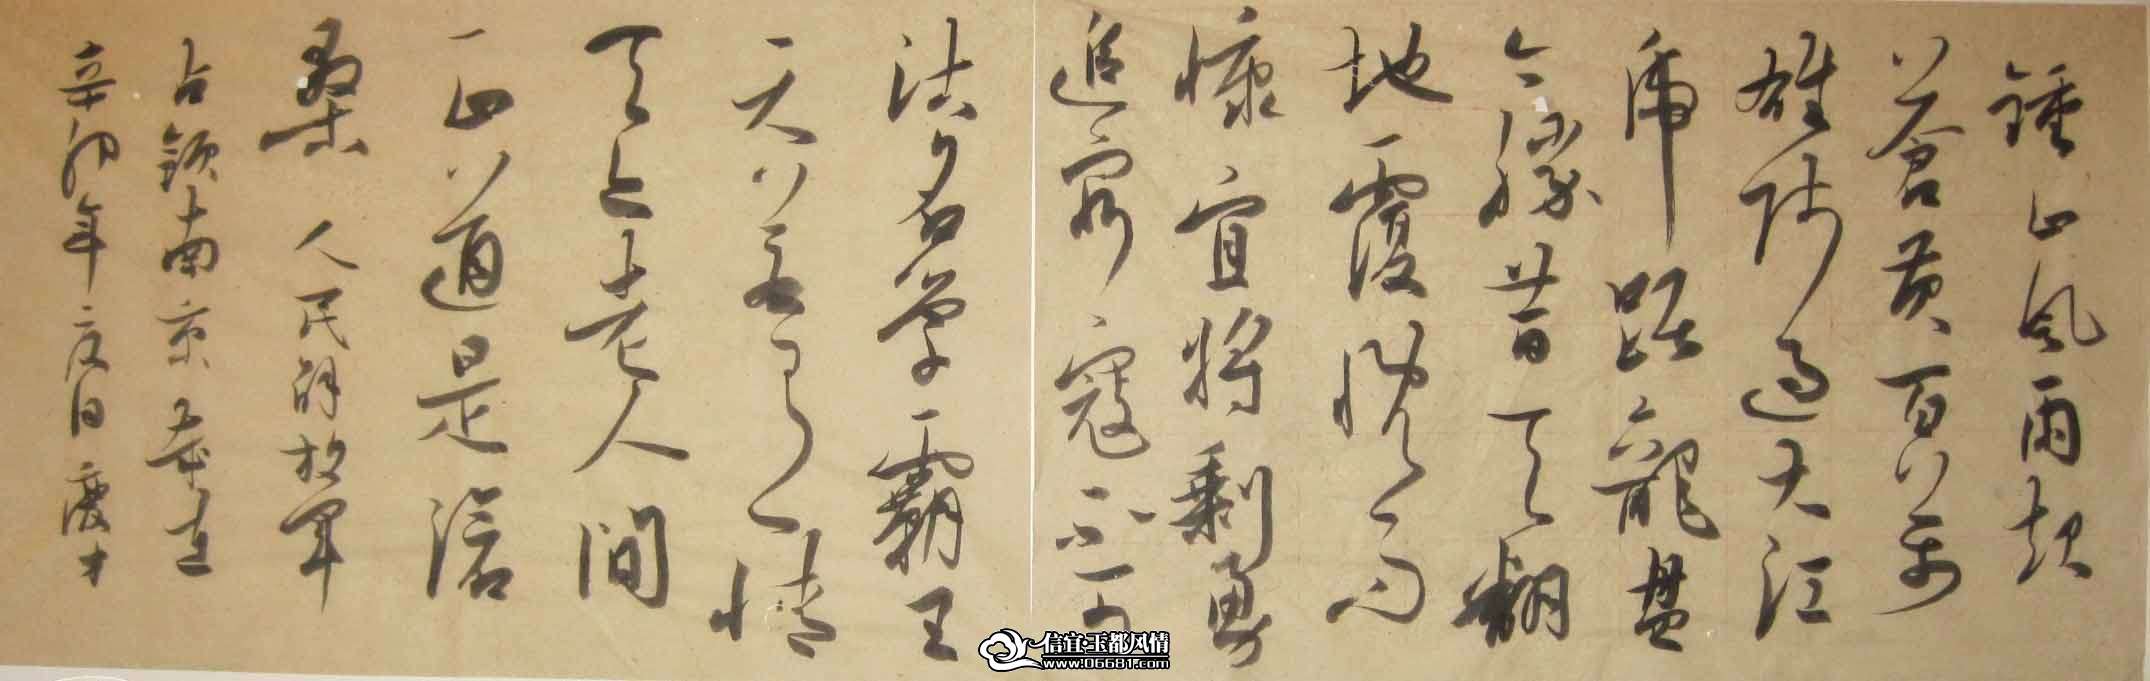 鍾山風雨起
蒼黄百万
雄师過大江
虎踞龍盘
今勝昔天翻
地覆慨而
慷宜將剩勇
追窮寇不可
沽名学霸王
天若有情
天亦老人間
正道是滄
桑 人民解放军
占領南京
辛卯年夏日 慶才
信宜·玉都风情
www.06681.com